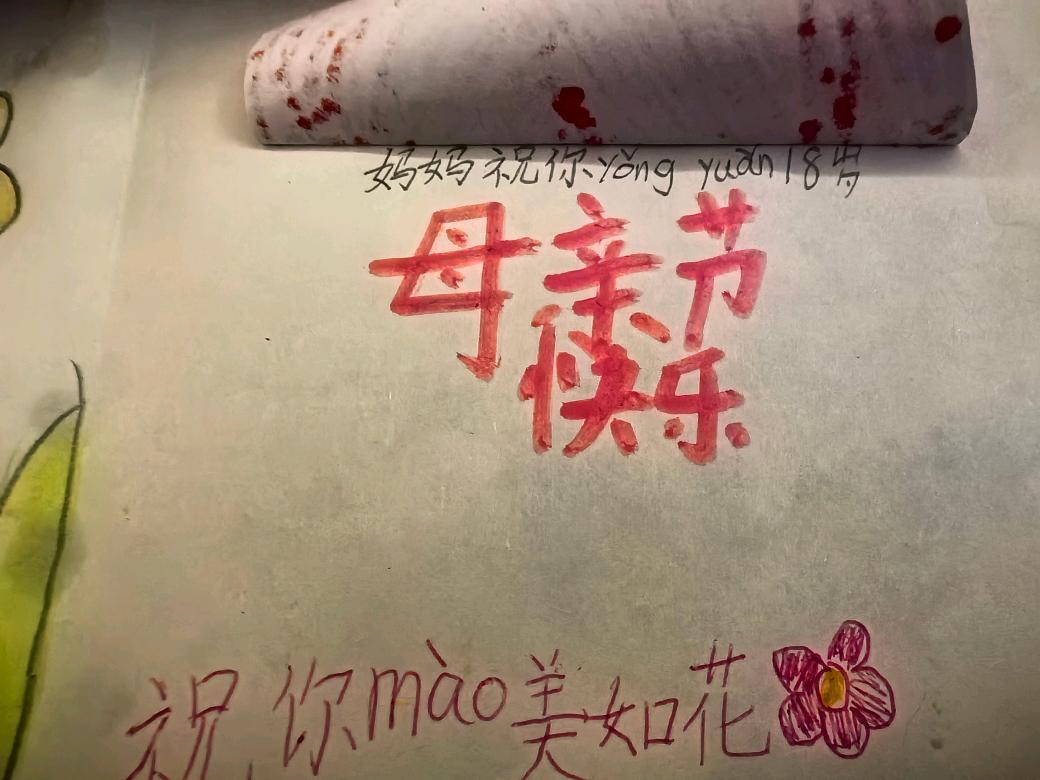 妈妈祝你yǒng yuǎn18岁
母亲节
快乐
祝你mào美如花